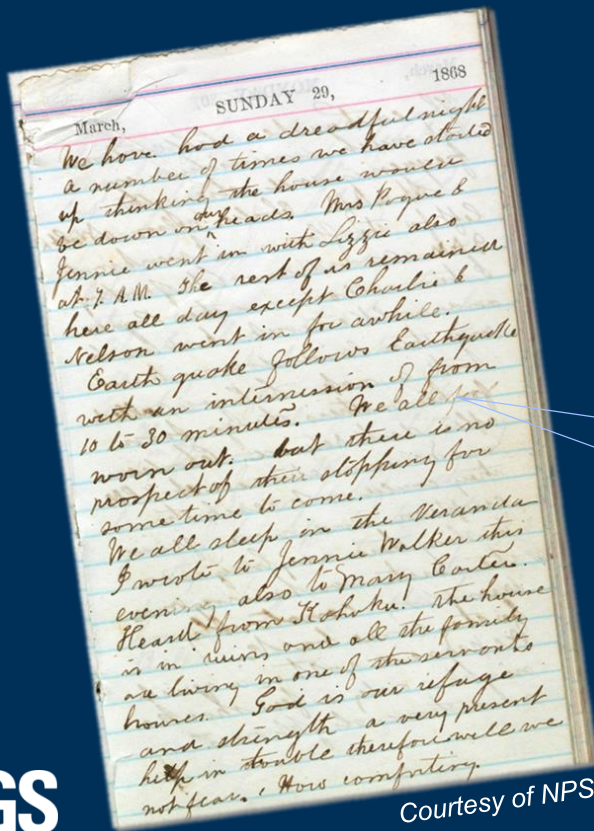 March, SUNDAY 29, 1868
We have had a dreadful night
a number of times we have started
up thinking the house would
be down on our heads. Mrs Pogue &
Jennie went in with Lizzie also
at 7. A.M. The rest of us remained
here all day except Charlie &
Nelson went in for awhile.
Earth quake follows Earthquake
with an intermission of from
10 to 30 minutes. We all
worn out. but there is no
prospect of their stopping for
some time to come.
We all sleep in the Veranda
I wrote to Jennie Walker this
evening also to Mary Carter.
Heard from Kahuku. The house
is in ruins and all the family
are living in one of the servants
houses. God is our refuge
and strength a very present
help in trouble therefore will we
not fear. How comforting.
GS
Courtesy of NPS